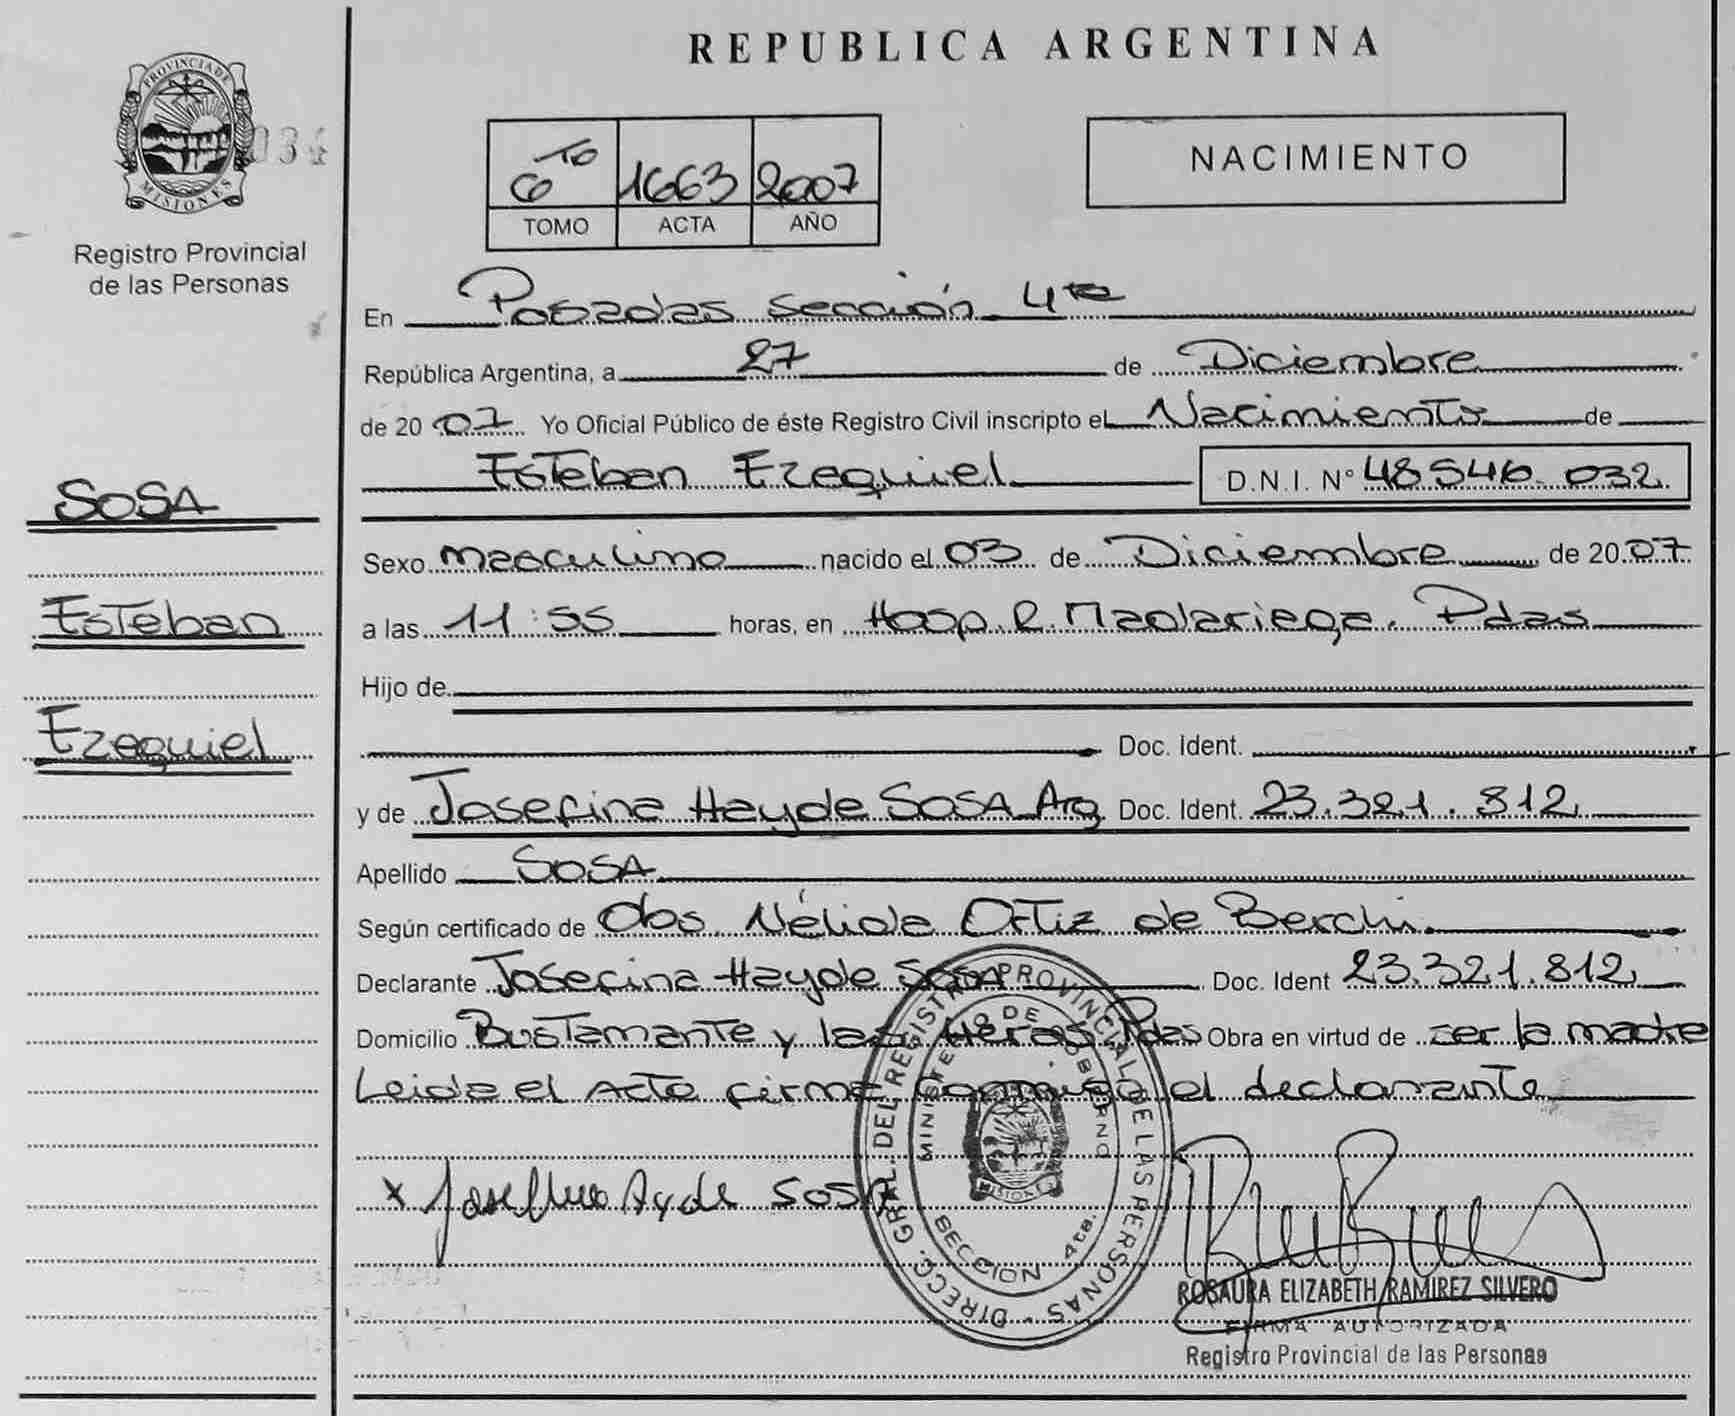 REPUBLICA ARGENTINA
PROVINCIA DE
MISIONES
034
Registro Provincial
de las Personas
6to 1663 2007
TOMO ACTA AÑO
NACIMIENTO
En Posadas Sección 4ta
República Argentina, a 27 de Diciembre
de 2007 Yo Oficial Público de éste Registro Civil inscripto el Nacimiento de
Esteban Ezequiel D.N.I. N° 48546.032
SOSA
Esteban
Ezequiel
Sexo masculino nacido el 03 de Diciembre de 2007
a las 11:55 horas, en Hosp. R. Madariaga. Pdas
Hijo de
Doc. Ident.
y de Josefina Hayde SOSA Arg Doc. Ident. 23.321.812
Apellido SOSA
Según certificado de Obs. Nélida Ortiz de Berchi
Declarante Josefina Hayde SOSA Doc. Ident 23.321.812
Domicilio Bustamante y las Heras Pdas Obra en virtud de ser la madre
Leida el Acta firma conmigo el declarante
DIRECC. GRAL. DEL REGISTRO PROVINCIAL DE LAS PERSONAS
MINISTERIO DE GOBIERNO
MISIONES
SECCION 4ta.
x Josefina Ayde SOSA
ROSAURA ELIZABETH RAMIREZ SILVERO
FIRMA AUTORIZADA
Registro Provincial de las Personas